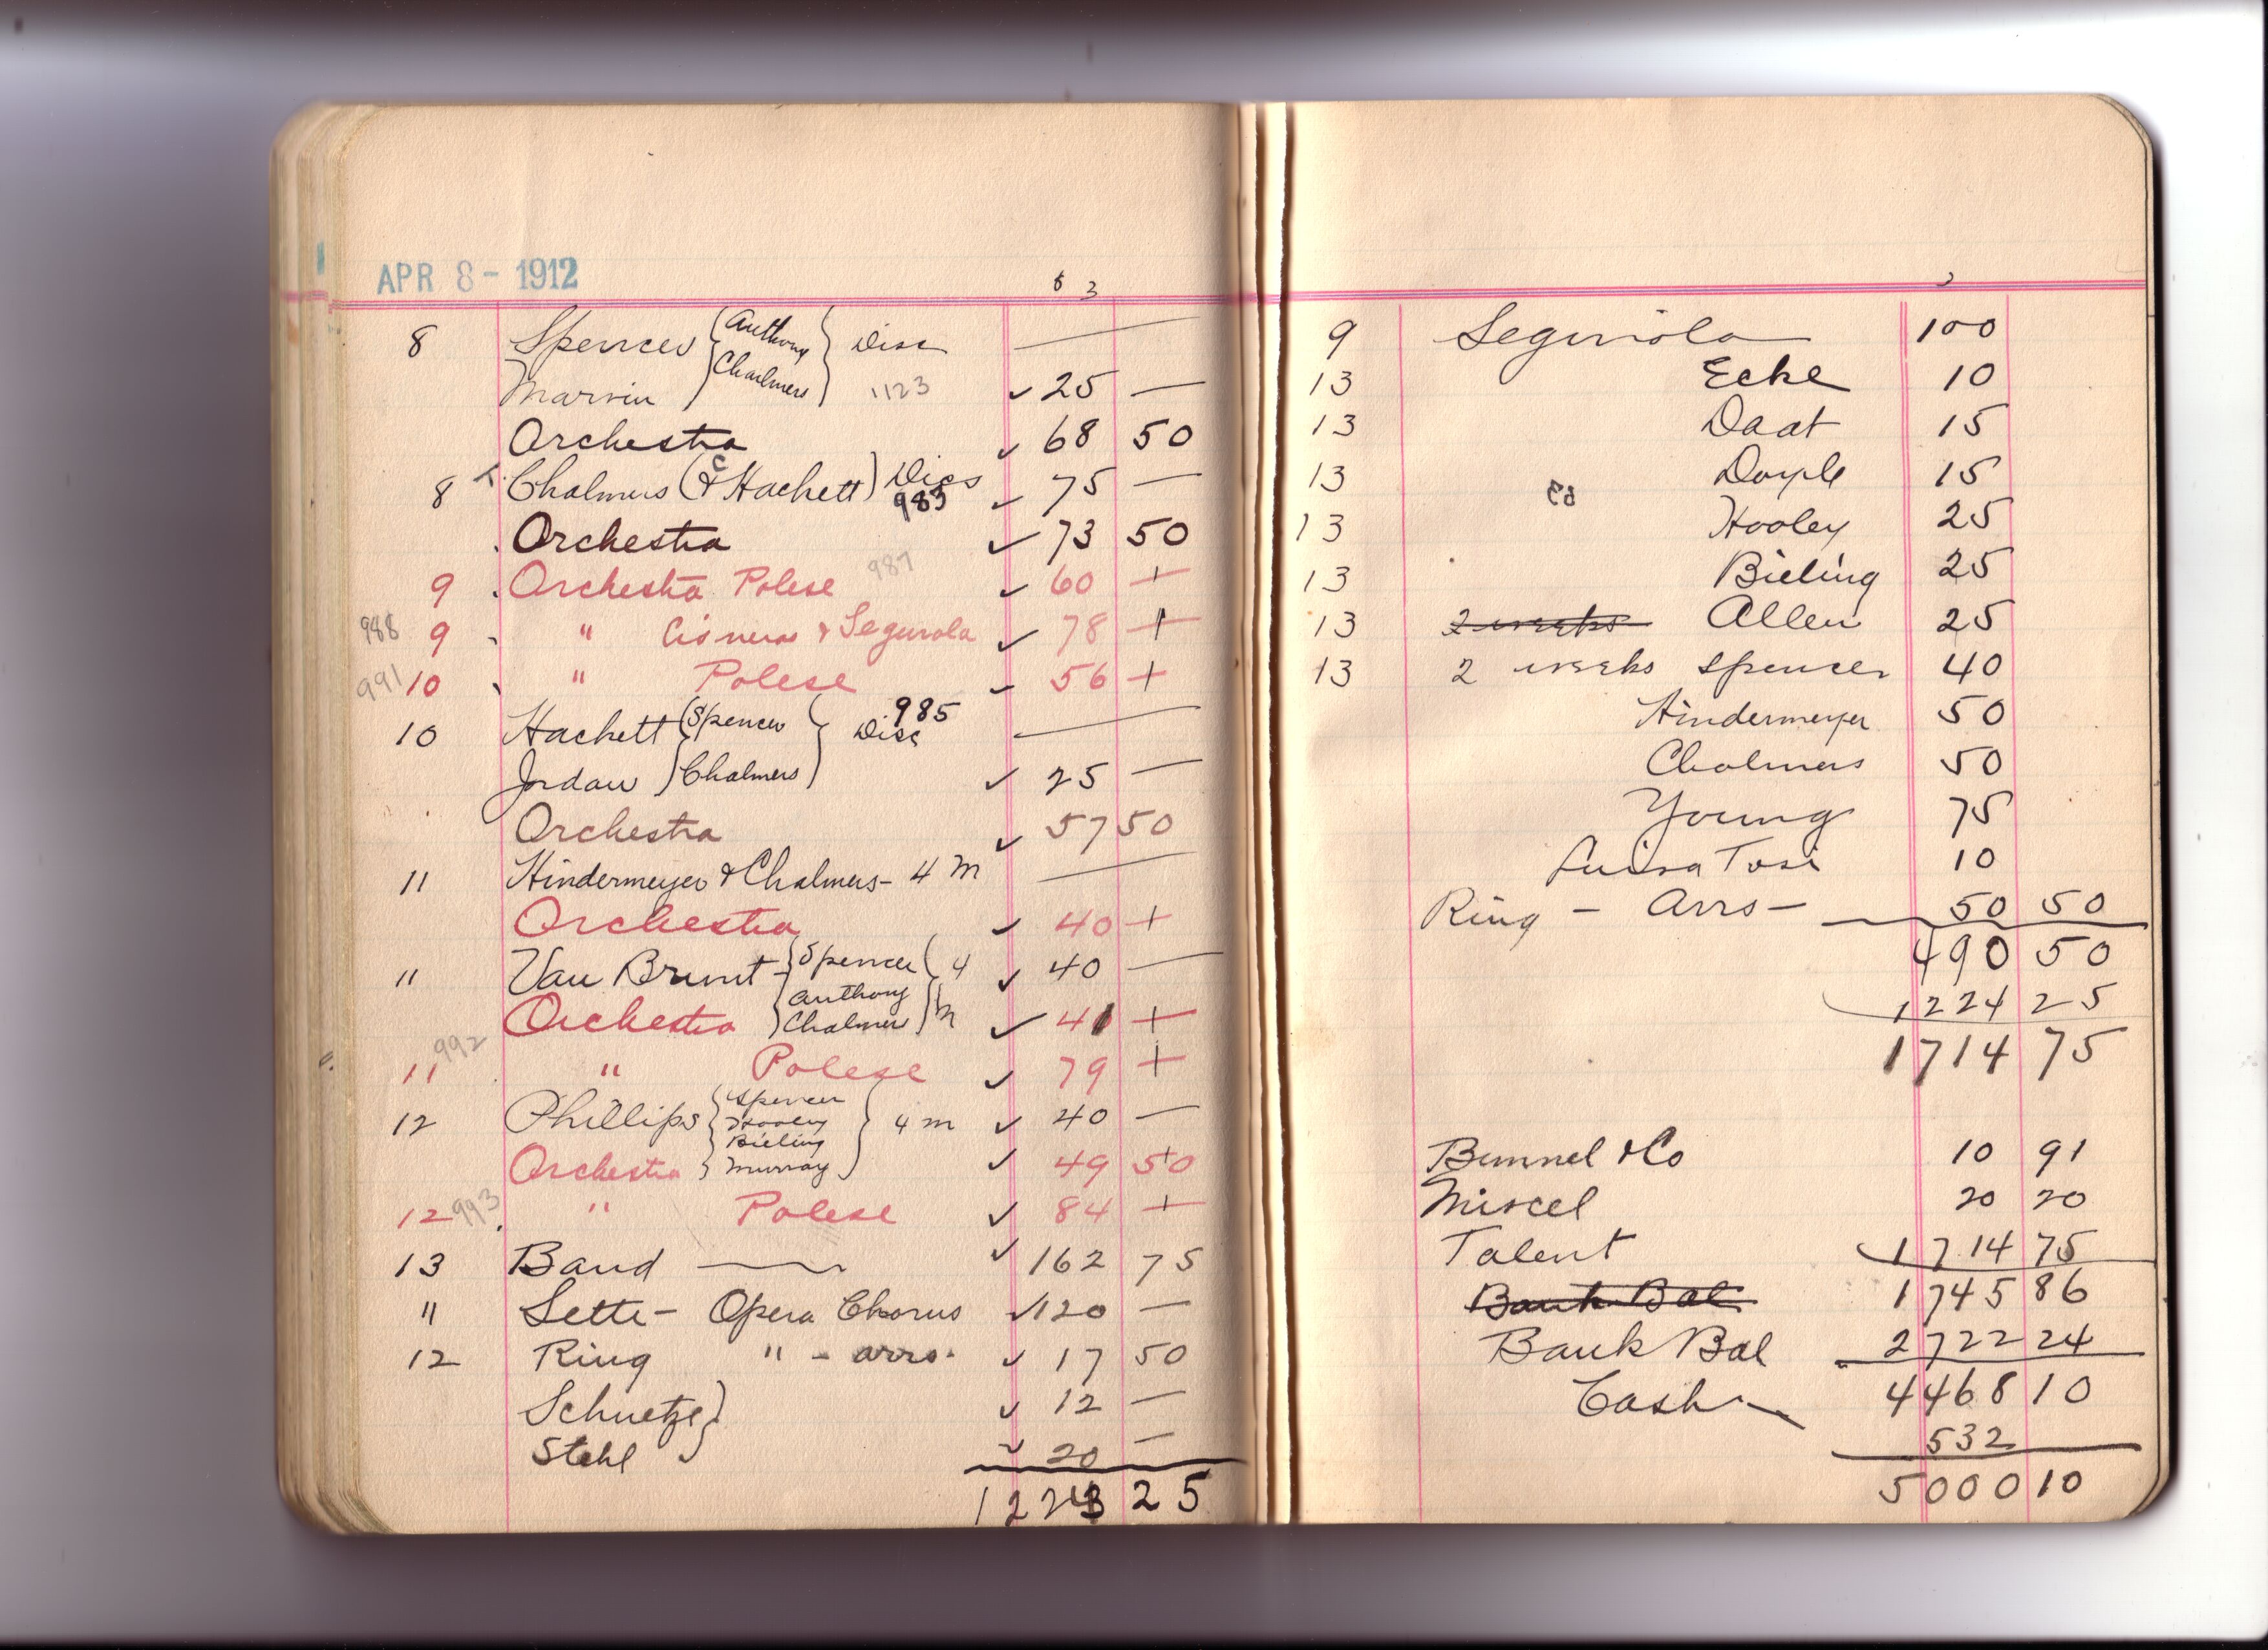 APR 8 - 1912
8 Spencer Anthony Disc —
Marvin Chalmers 1123 ✓ 25 —
Orchestra ✓ 68 50
8 Chalmers (& Hackett) Discs 983 ✓ 75 —
Orchestra ✓ 73 50
9 Orchestra Polese 987 ✓ 60 +
988 9 " Cisneros & Segurola ✓ 78 +
991 10 " Polese ✓ 56 +
10 Hackett Spencer Disc 985 —
Jordan Chalmers ✓ 25 —
Orchestra ✓ 57 50
11 Hindermeyer & Chalmers - 4 M —
Orchestra ✓ 40 +
11 Van Brunt - Spencer 4 ✓ 40 —
Orchestra Anthony Chalmers M ✓ 41 +
11 992 " Polese ✓ 79 +
12 Phillips Spencer Hooley Bieling 4 M ✓ 40 —
Orchestra Murray ✓ 49 50
12 993 " Polese ✓ 84 +
13 Band — ✓ 162 75
" Sette - Opera Chorus ✓ 120 —
12 Ring " - arrs. ✓ 17 50
Schuetze ✓ 12 —
Stehl ✓ 20 —
25
9 Segurola 100
13 Ecke 10
13 Daat 15
13 Doyle 15
13 Hooley 25
13 Bieling 25
13 2 weeks Allen 25
13 2 weeks Spencer 40
Hindermeyer 50
Chalmers 50
Young 75
Luisa Tosi 10
Ring - Arrs - 50 50
490 50
1224 25
1714 75
Bunnel & Co 10 91
Miscel 20 20
Talent 1714 75
Bank Bal 1745 86
Bank Bal 2722 24
Cash 4468 10
532
5000 10